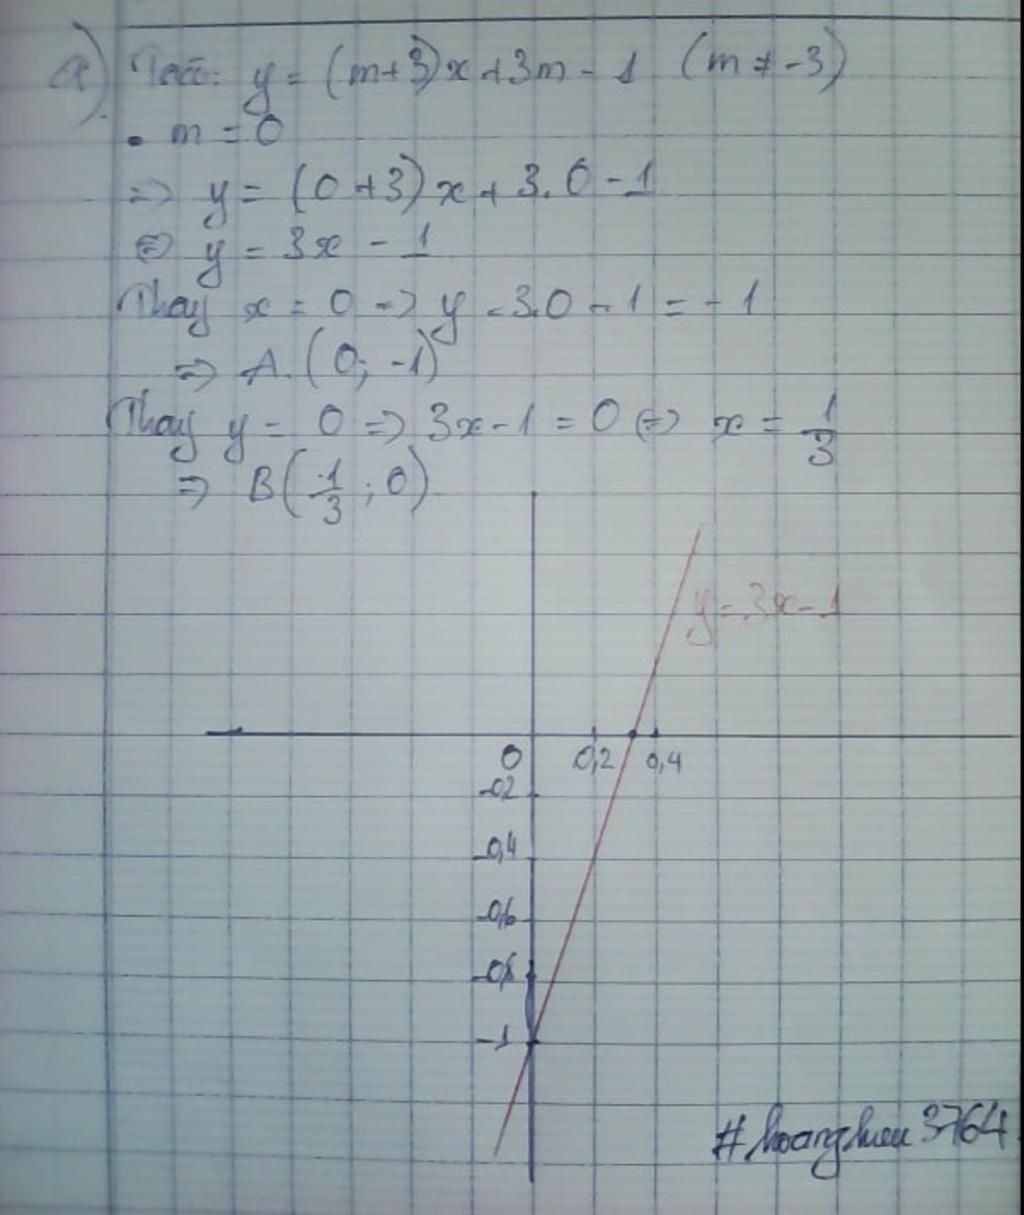 a) Ta có: y = (m+3)x + 3m - 1 (m ≠ -3)
• m = 0
=> y = (0+3)x + 3.0 - 1
<=> y = 3x - 1
Thay x = 0 => y = 3.0 - 1 = -1
=> A (0; -1)
Thay y = 0 => 3x - 1 = 0 <=> x = 1/3
=> B(1/3; 0)
y = 3x - 1
0 0,2 0,4
-0,2
-0,4
-0,6
-0,8
-1
#hoanghieu3764